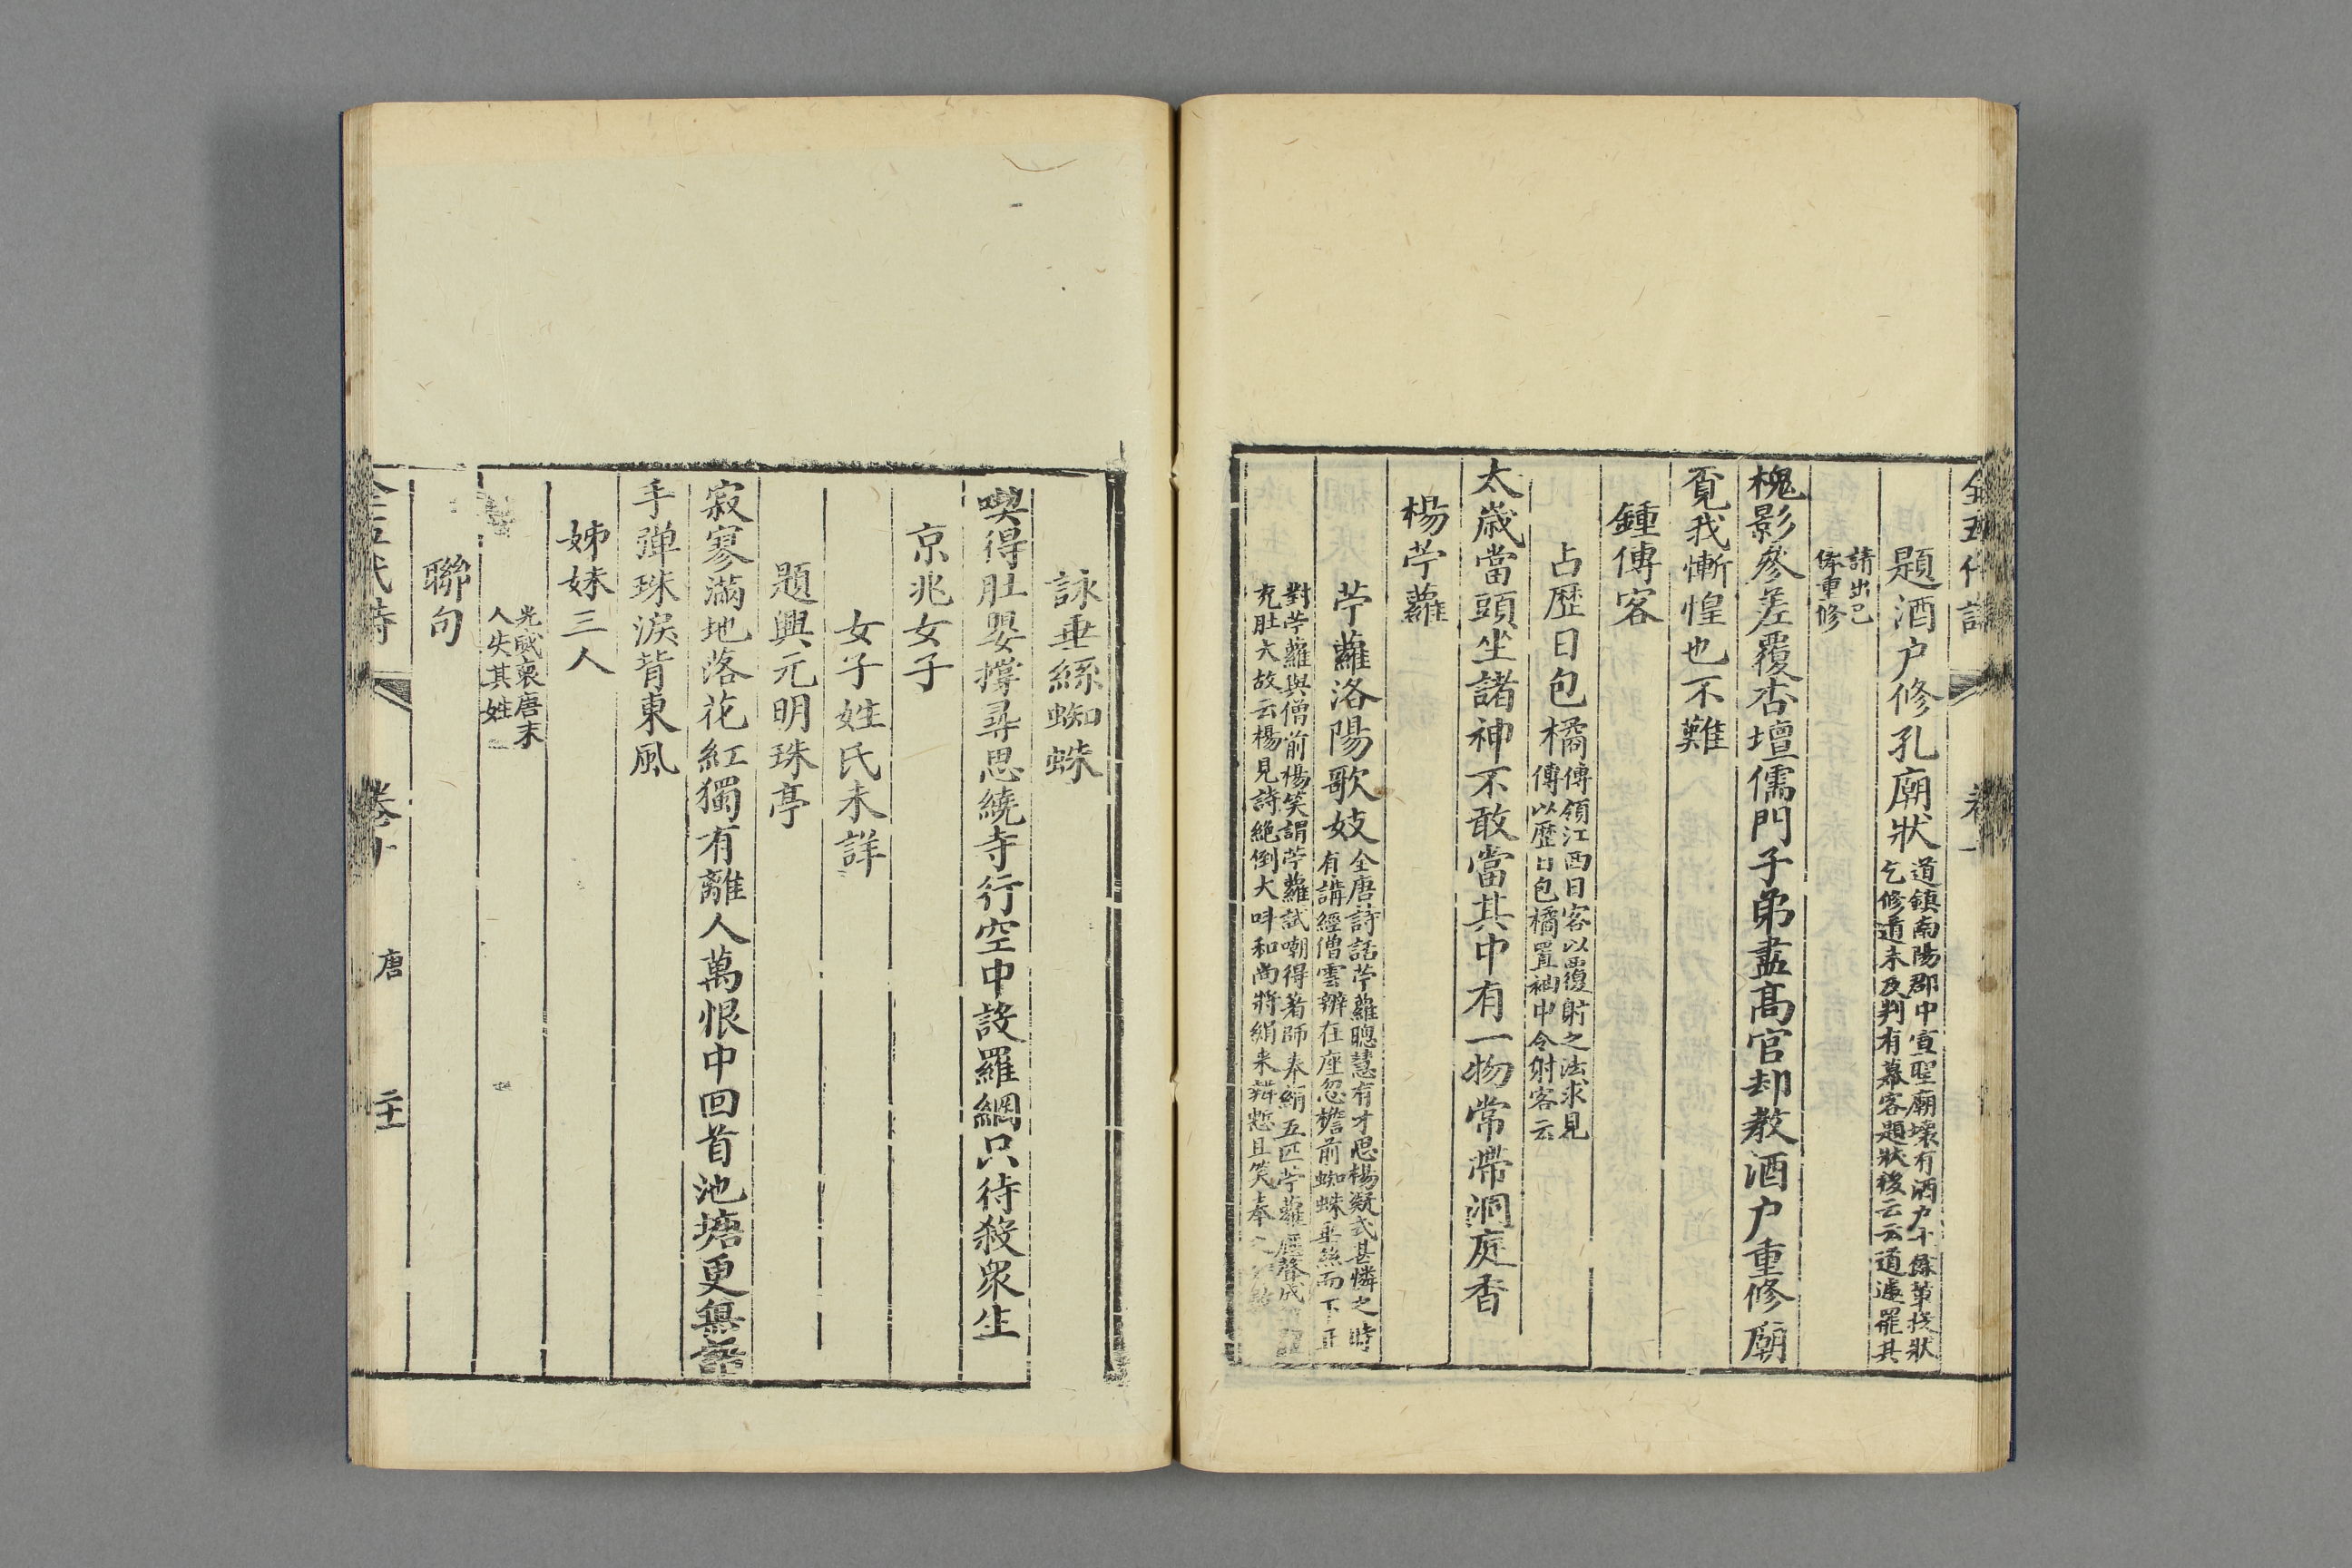 題酒户修孔廟狀道鎮南陽郡中宣聖廟壞有酒户十餘輩投狀
乞修道未及判有幕客題狀後云云道遽罷其
請出己
俸重修
槐影參差覆杏壇儒門子弟盡高官却教酒户重修廟
覔我慚惶也不難
鍾傳客
占歷日包橘傳領江西日客以覆射之法求見
傳以歷日包橘置袖中令射客云
太歲當頭坐諸神不敢當其中有一物常帶洞庭香
楊苧蘿
苧蘿洛陽歌妓全唐詩話苧蘿聰慧有才思楊凝式甚憐之時
有講經僧雲辨在座忽檐前蜘蛛垂絲而下正
對苧蘿與僧前楊笑謂苧蘿試嘲得著師奉絹五匹苧蘿應聲成
充肚大故云楊見詩絶倒大呌和尚將絹來辨慙且笑奉
詠垂絲蜘蛛
喫得肚罌撑尋思繞寺行空中設羅網只待殺衆生
京兆女子
女子姓氏未詳
題興元明珠亭
寂寥滿地落花紅獨有離人萬恨中回首池塘更無語
手彈珠淚背東風
姊妹三人
光威裒唐末
人失其姓
聯句
全五代詩 卷十 唐 二十